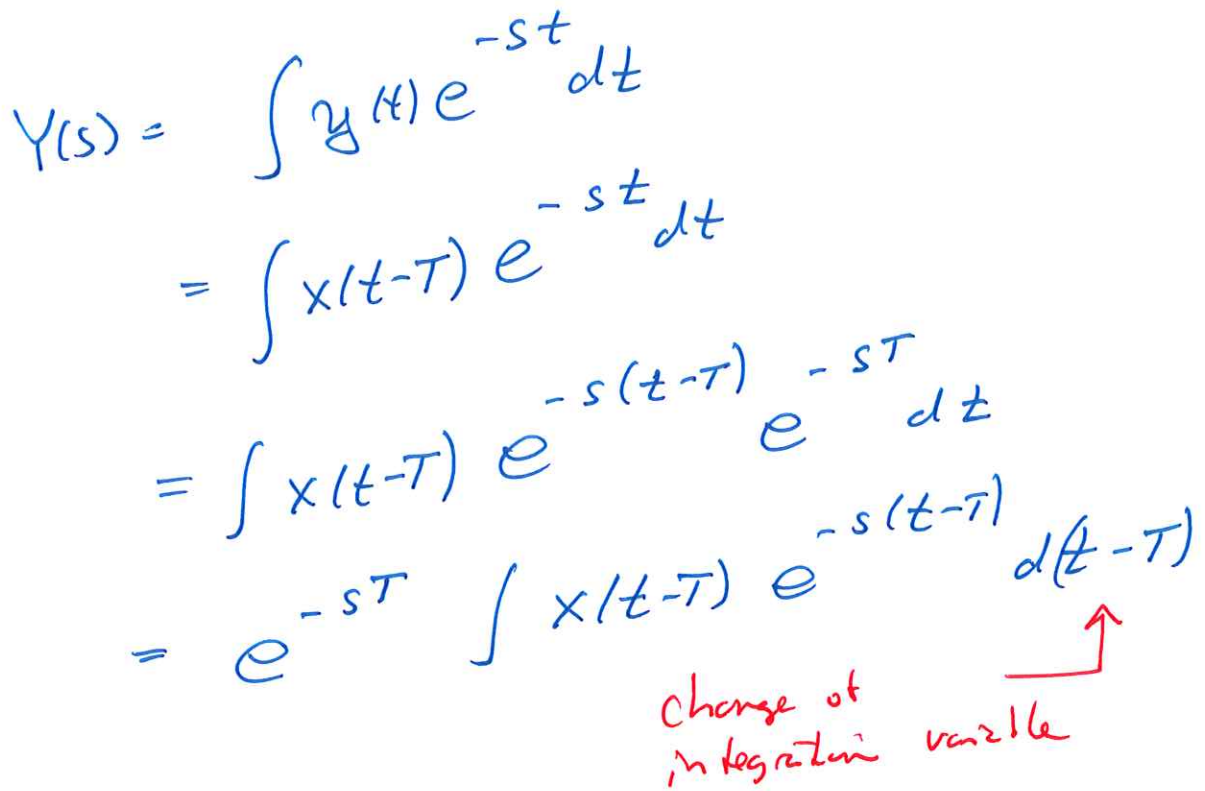 Y(s) = ∫ y(t) e^{-st} dt
= ∫ x(t-T) e^{-st} dt
= ∫ x(t-T) e^{-s(t-T)} e^{-sT} dt
= e^{-sT} ∫ x(t-T) e^{-s(t-T)} d(t-T)
change of
integration variable